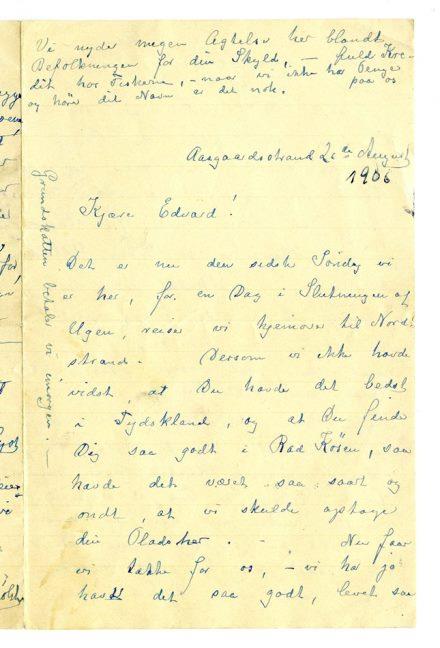 Vi nyder megen Agtelse her blandt
Befolkningen for din Skyld, — fuld Kre-
dit hos Fiskerne, — naar vi ikke har Penge
paa os
og høre dit Navn er det nok.
Aasgaardsstrand 26de August
1906
Kjære Edvard!
Det er nu den sidste Søndag vi
er her, for en Dag i Slutningen af
Ugen, reiser vi hjemover til Nord-
strand. Dersom vi ikke havde
vidst, at Du havde det bedst
i Tydskland, og at Du finder
Dig saa godt i Bad Kösen, saa
havde det været saa saart og
ondt, at vi skulde optage
din Plads her. — Nu faar
vi takke for os, — vi har jo
havt det saa godt, levet saa
Grundskatten betaler vi imorgen. —